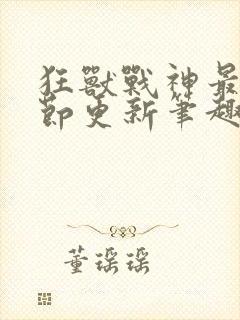 狂獸戰神最
節更新筆趣
董瑶瑶